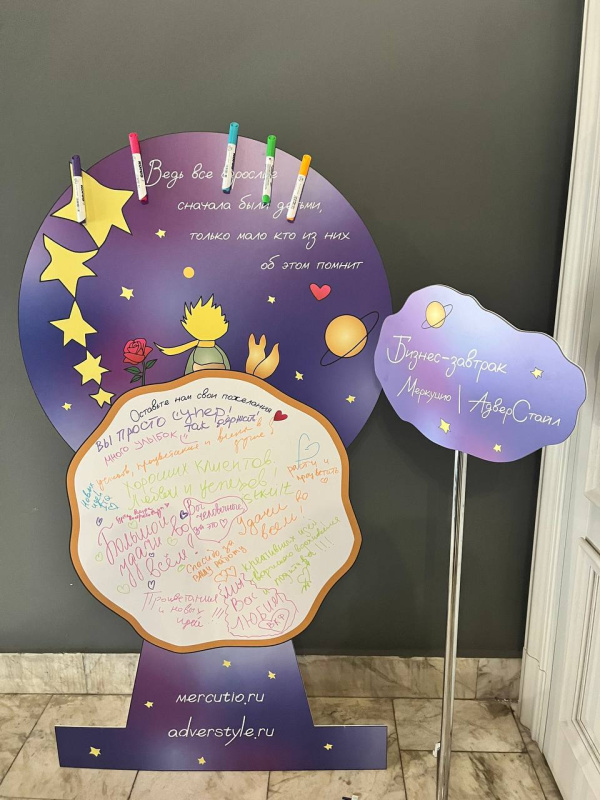 Ведь все взрослые
сначала были детьми,
только мало кто из них
об этом помнит
Бизнес-завтрак
Меркушио | АдверСтайл
Оставьте нам свои пожелания
ВЫ ПРОСТО СУПЕР!
так держать
много улыбок
Успехов, процветания и весны в душе
Хороших клиентов,
Любви и успехов!
расти и
процветать
Удачи во
всём!
Большой
удачи во
всём!
Спасибо за
вашу работу
креативных идей
Процветания
и новых
идей
МЫ
Вас
ЛЮБИМ
mercutio.ru
adverstyle.ru